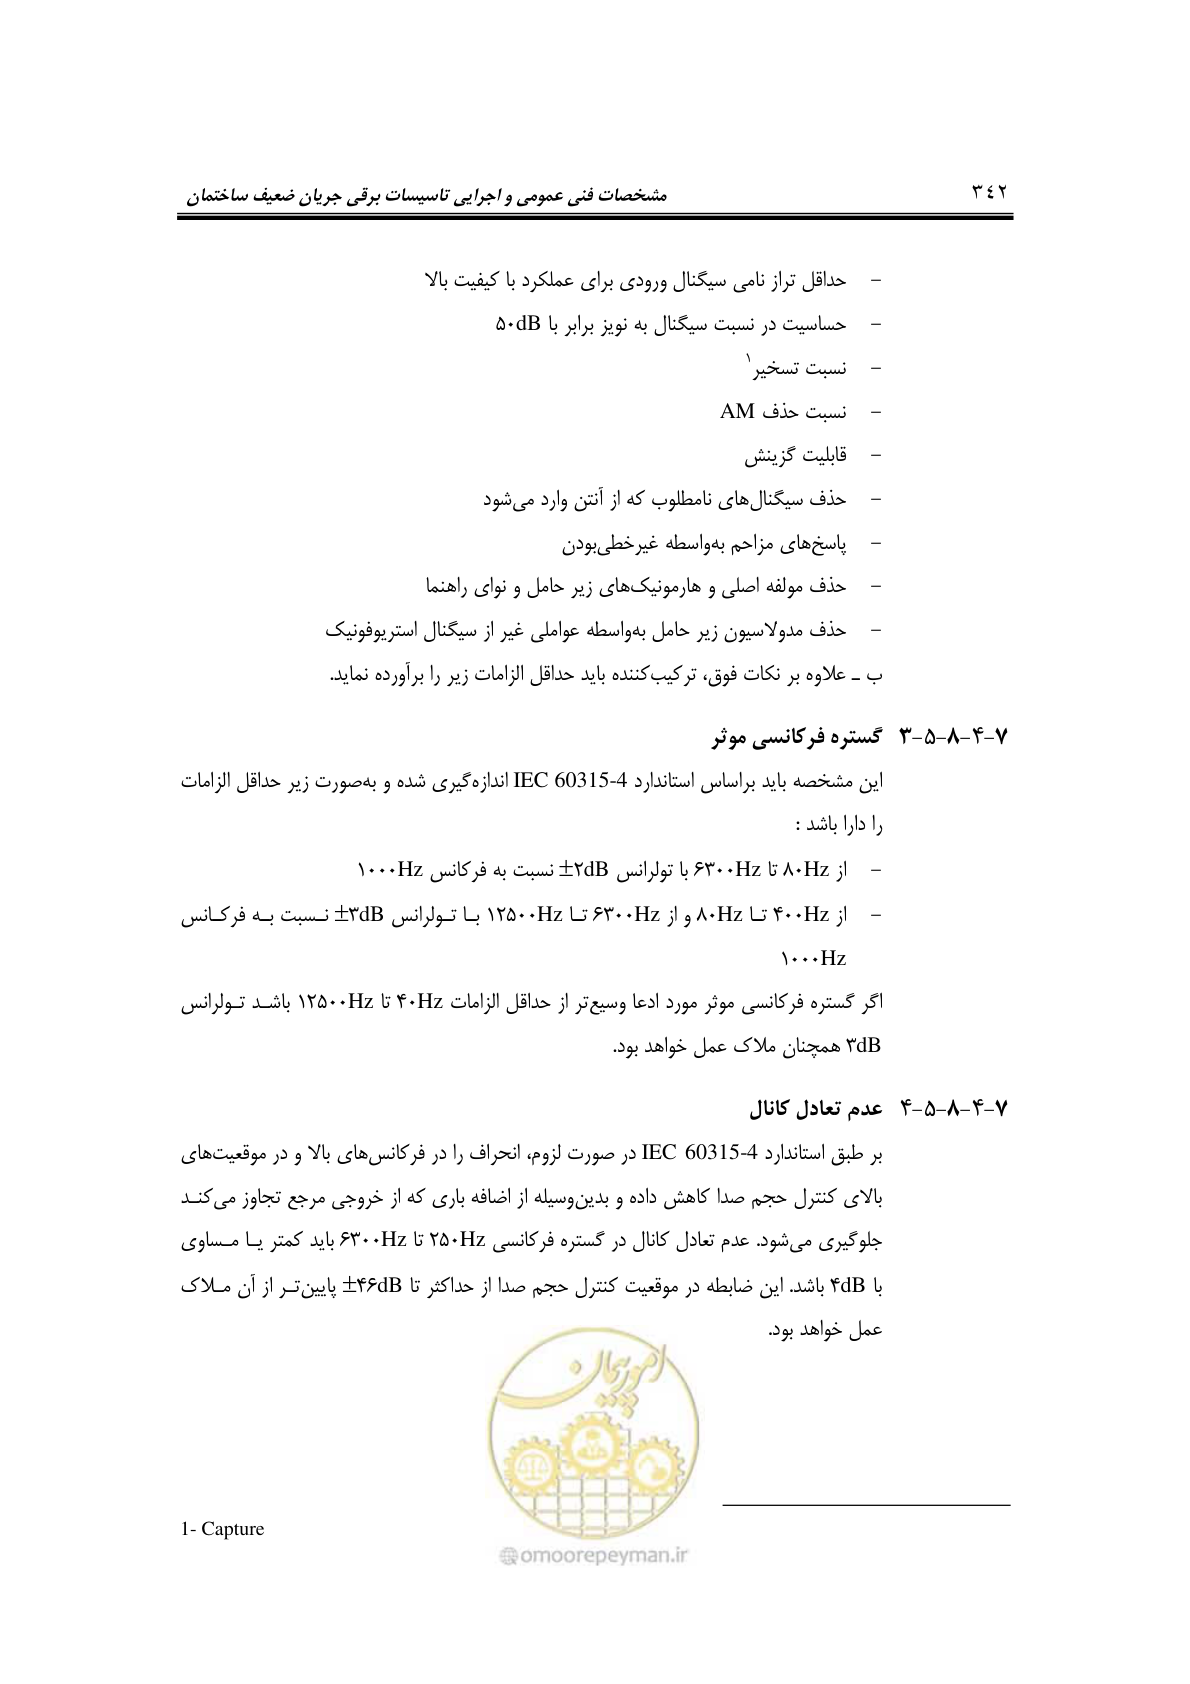 ۳۴۲ مشخصات فنی عمومی و اجرایی تاسیسات برقی جریان ضعیف ساختمان
– حداقل تراز نامی سیگنال ورودی برای عملکرد با کیفیت بالا
– حساسیت در نسبت سیگنال به نویز برابر با ۵۰dB
– نسبت تسخیر۱
– نسبت حذف AM
– قابلیت گزینش
– حذف سیگنال‌های نامطلوب که از آنتن وارد می‌شود
– پاسخ‌های مزاحم به‌واسطه غیرخطی‌بودن
– حذف مولفه اصلی و هارمونیک‌های زیر حامل و نوای راهنما
– حذف مدولاسیون زیر حامل به‌واسطه عواملی غیر از سیگنال استریوفونیک
ب ـ علاوه بر نکات فوق، ترکیب‌کننده باید حداقل الزامات زیر را برآورده نماید.
۷-۴-۸-۵-۳ گستره فرکانسی موثر
این مشخصه باید براساس استاندارد IEC 60315-4 اندازه‌گیری شده و به‌صورت زیر حداقل الزامات
را دارا باشد :
– از ۸۰Hz تا ۶۳۰۰Hz با تولرانس ±۲dB نسبت به فرکانس ۱۰۰۰Hz
– از ۴۰۰Hz تـا ۸۰Hz و از ۶۳۰۰Hz تـا ۱۲۵۰۰Hz بـا تـولرانس ±۳dB نـسبت بـه فرکـانس
۱۰۰۰Hz
اگر گستره فرکانسی موثر مورد ادعا وسیع‌تر از حداقل الزامات ۴۰Hz تا ۱۲۵۰۰Hz باشـد تـولرانس
۳dB همچنان ملاک عمل خواهد بود.
۷-۴-۸-۵-۴ عدم تعادل کانال
بر طبق استاندارد IEC 60315-4 در صورت لزوم، انحراف را در فرکانس‌های بالا و در موقعیت‌های
بالای کنترل حجم صدا کاهش داده و بدین‌وسیله از اضافه باری که از خروجی مرجع تجاوز می‌کنـد
جلوگیری می‌شود. عدم تعادل کانال در گستره فرکانسی ۲۵۰Hz تا ۶۳۰۰Hz باید کمتر یـا مـساوی
با ۴dB باشد. این ضابطه در موقعیت کنترل حجم صدا از حداکثر تا ±۴۶dB پایین‌تـر از آن مـلاک
عمل خواهد بود.
امور پیمان
1- Capture
@omoorepeyman.ir